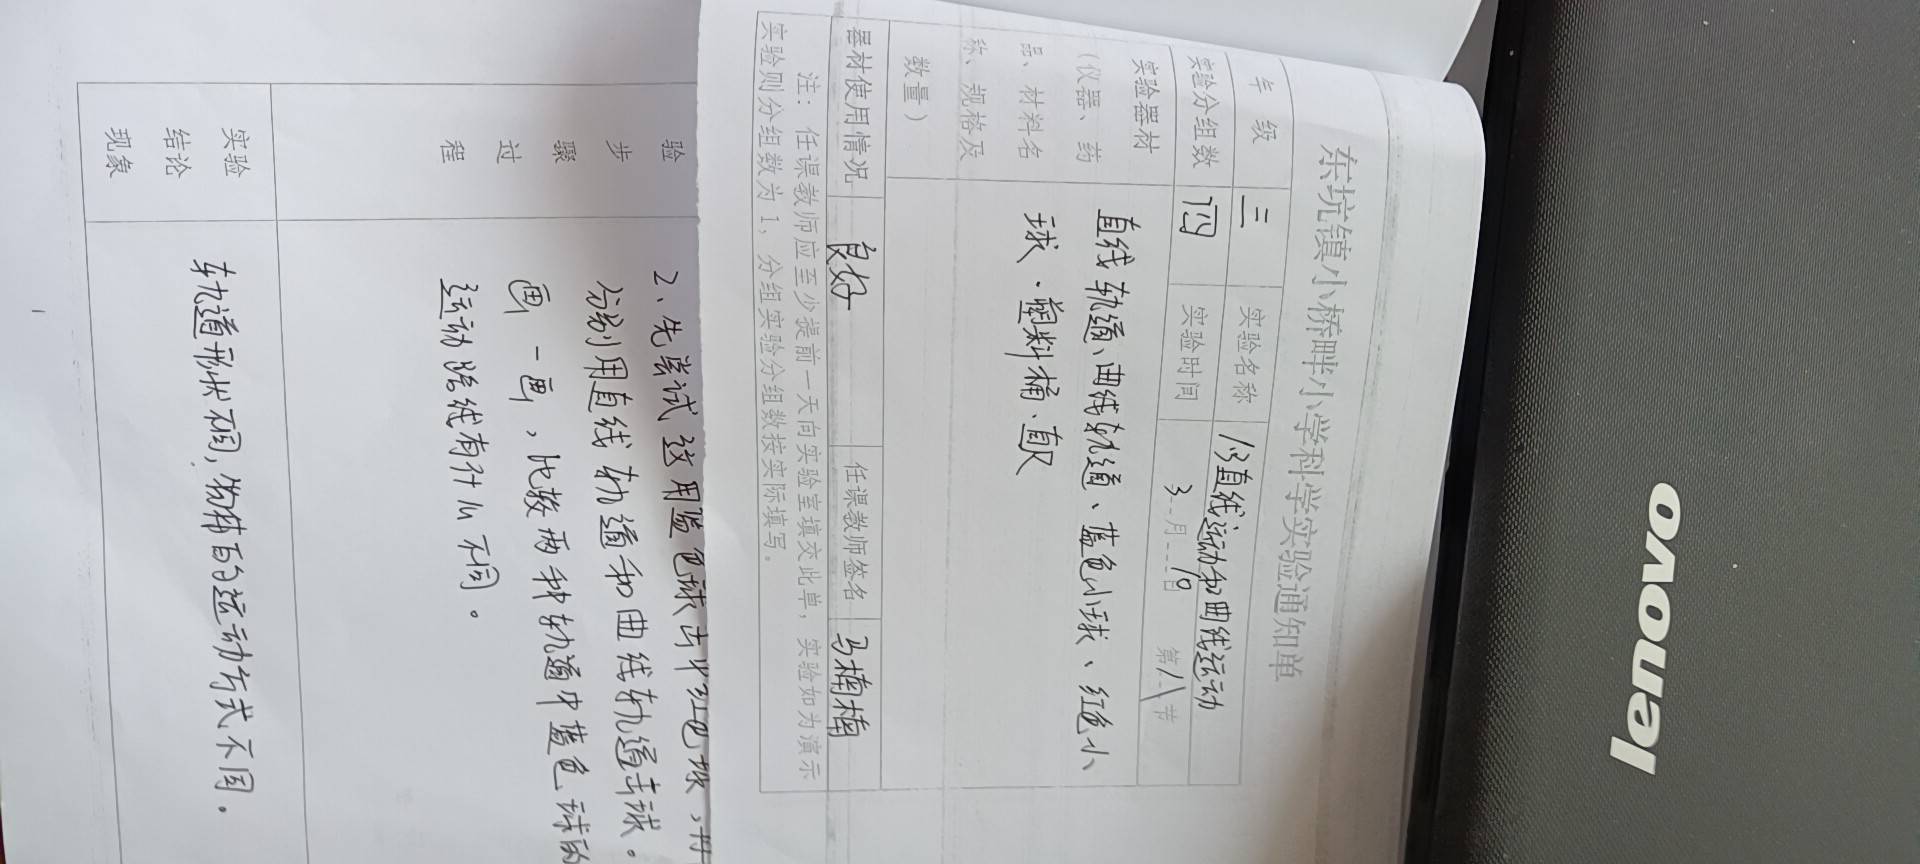 东坑镇小桥畔小学科学实验通知单
年级 三 实验名称 13直线运动和曲线运动
实验分组数 四 实验时间 3月19日 第1节
实验器材
(仪器、药
品、材料名
称、规格及
数量)
直线轨道、曲线轨道、蓝色小球、红色小
球、塑料桶、直尺
器材使用情况 良好 任课教师签名 马楠楠
注: 任课教师应至少提前一天向实验室填交此单,实验如为演示
实验则分组数为1,分组实验分组数按实际填写。
验
步
骤
过
程
2、先尝试这用蓝色球击中红色球,并
分别用直线轨道和曲线轨道击球。
画一画,比较两种轨道中蓝色球的
运动路线有什么不同。
实验
结论
现象
轨道形状不同,物体的运动方式不同。
lenovo